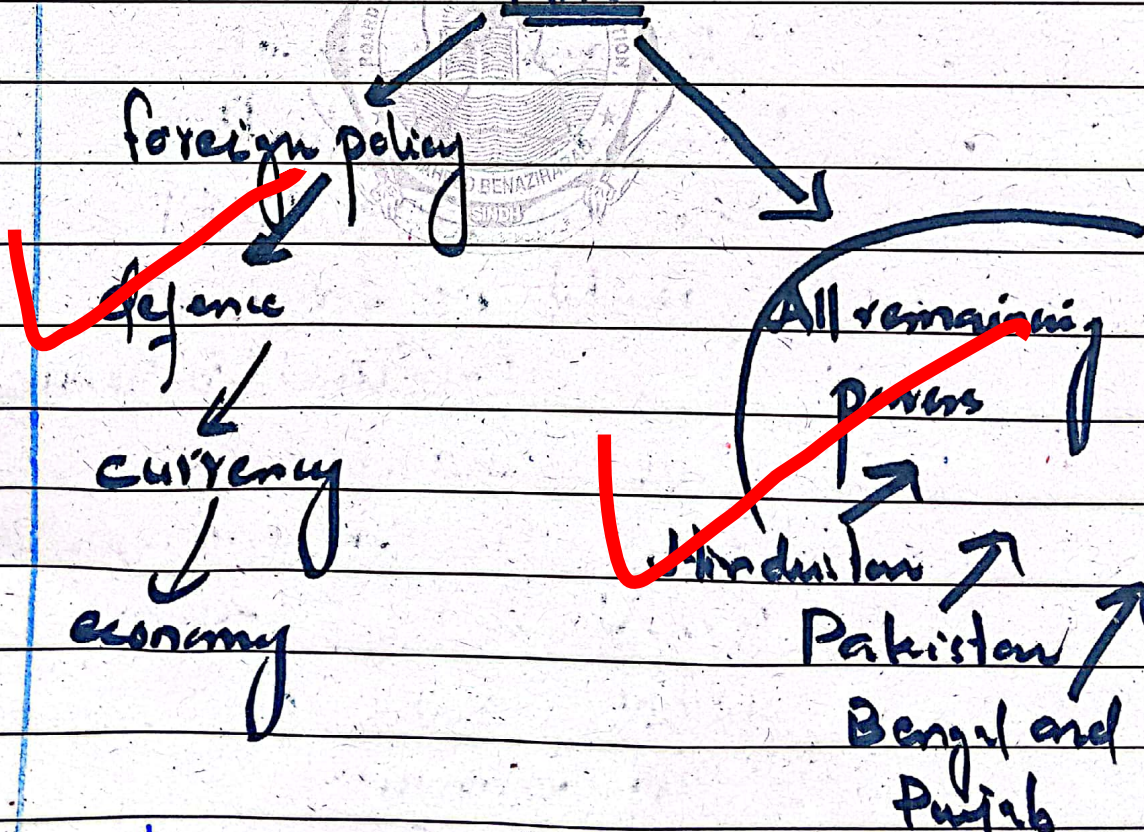 foreign policy
defence
currency
economy
All remaining
powers
Hindustan
Pakistan
Bengal and
Punjab
BOARD
TION
BENAZIRABAD
SINDH